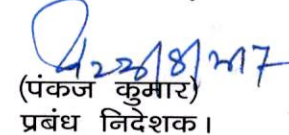 22/8/2017
(पंकज कुमार)
प्रबंध निदेशक।